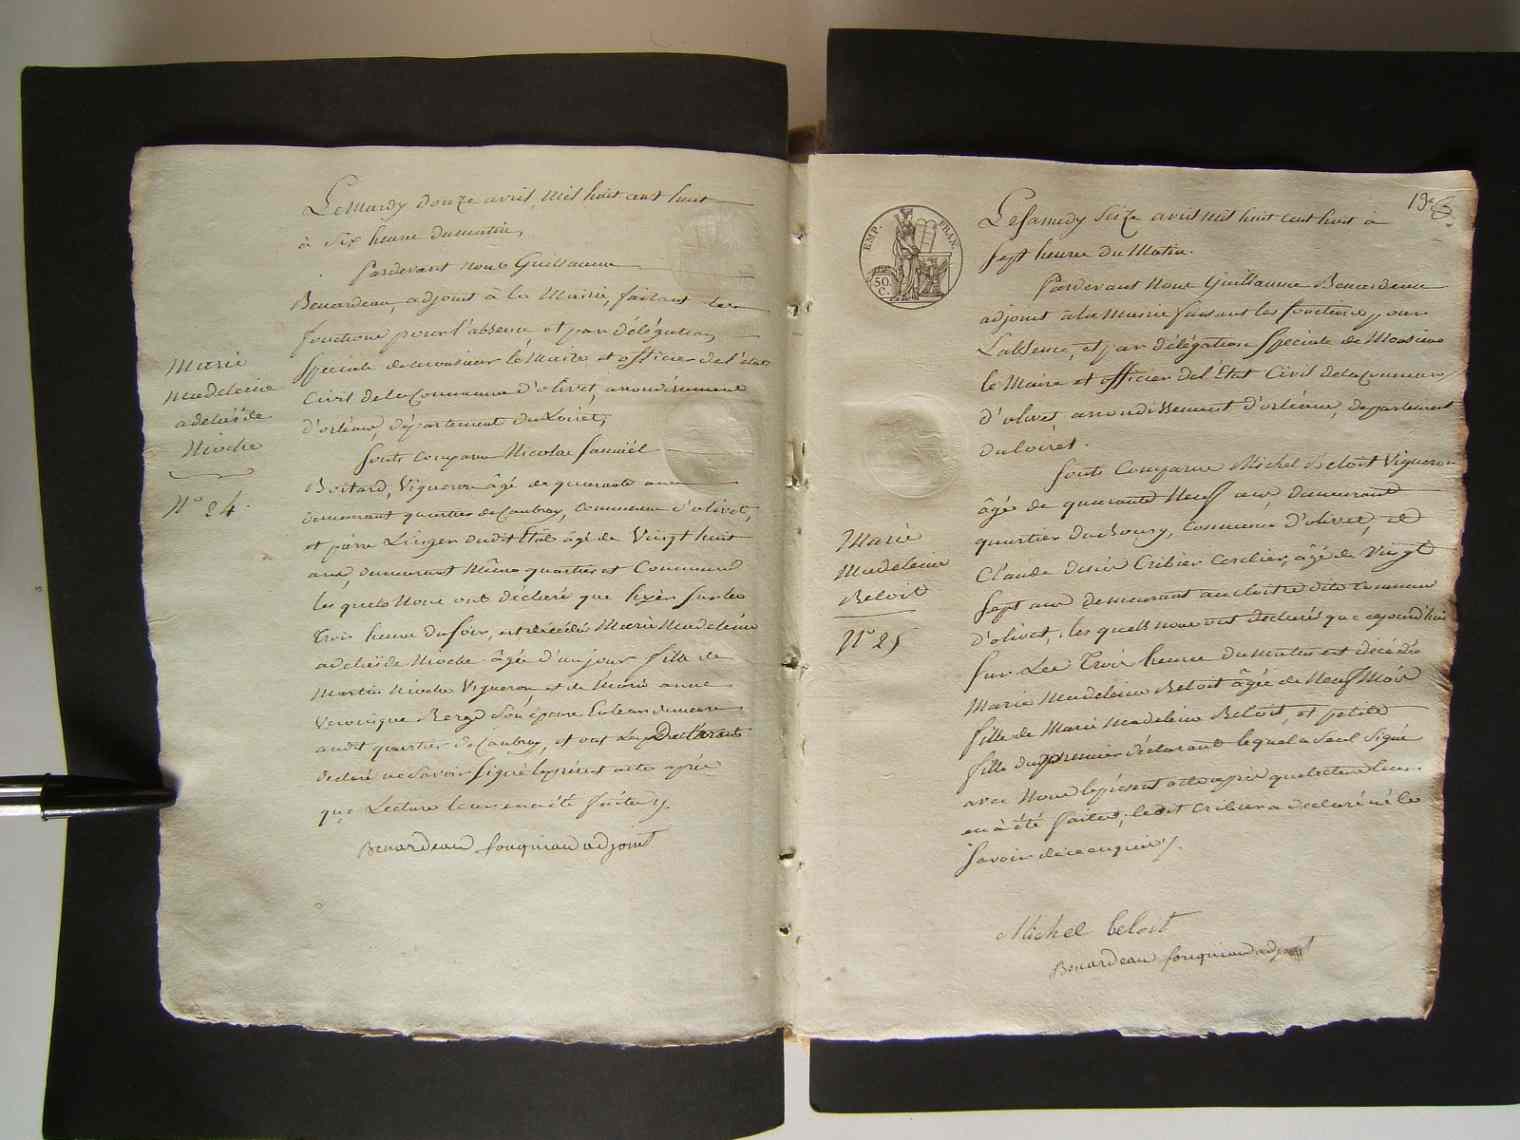 Le Mardy douze avril, mil huit cent huit
à Six heure du matin,
Pardevant nous Guillaume
Benardeau, adjoint à la Mairie, faisant les
fonctions pour l'absence et par délégation
Speciale de monsieur le Maire et officier de l'état
Civil de la Commune d'olivet, arrondissement
d'orléans, département du Loiret,
Sont comparus Nicolas Samuël
Boitard, Vigneron âgé de quarante ans
demeurant quartier de Caubray, commune d'olivet,
et pierre Linger dudit Etat âgé de Vingt huit
ans, demeurant Même quartier et Commune
les quels Nous ont déclaré que hyèr sur les
Trois heure du soir, est décédée Marie Madeleine
adelaïde Nioche âgée d'un jour fille de
Martin Nioche Vigneron et de Marie anne
Veronique Bergé son épouse Ensemble demeurans
audit quartier de Caubray, et ont Les Declarants
declaré ne Savoir Signé le présent acte après
que Lecture leur en a été faite
Benardeau fouqueau adjoint
Marie
Madeleine
adelaïde
Nioche
N° 24.
19e
EMP. FRAN.
50.
C.
Le Samedy Seize avril mil huit cent huit à
Sept heure du Matin.
Pardevant Nous Guillaume Benardeau
adjoint à la Mairie faisant les fonctions pour
L'absence, et par délégation Speciale de Monsieur
le Maire et officier de l'Etat Civil de la Commune
d'olivet arrondissement d'orléans, departement
du loiret.
Sont Comparus Michel Beloit Vigneron
âgé de quarante Neuf ans, demeurant
quartier du Bourg, Commune d'olivet, et
Claude désir Cribier Cerclier, âgé de Vingt
Sept ans demeurant au cloitre dite commune
d'olivet, les quels nous ont declaré que ajourd'hui
Sur Les Trois heure du matin est décédée
Marie Madeleine Beloit âgée de Neuf Mois
fille de Marie Madeleine Beloit, et petite
fille du premier déclarant lequel a Seul Signé
avec Nous le présent acte après que lecture leur
en à été faite, ledit Cribier a declaré né le
Savoir de ce enquis
Michel beloit
Benardeau fouqueau adjoint
Marie
Madeleine
Beloit
N° 25